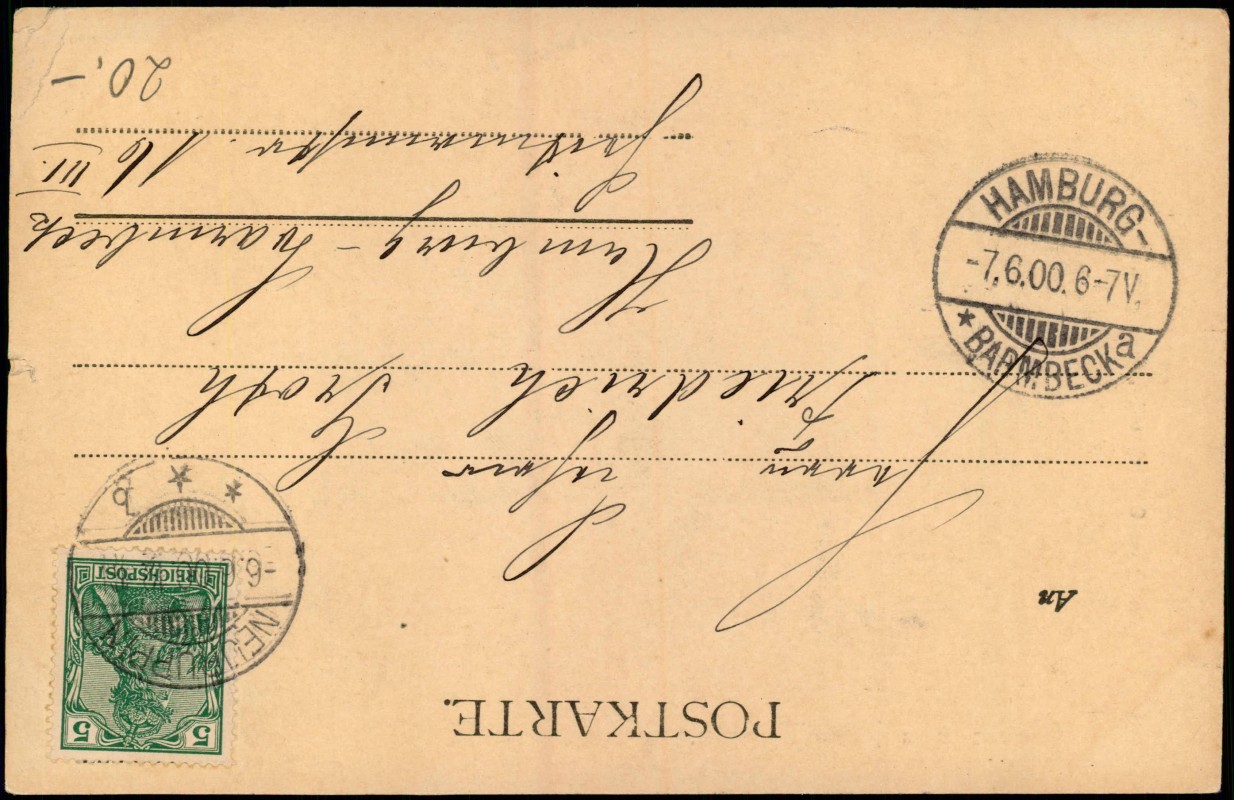 POSTKARTE.
5 5
REICHSPOST
An
Frau
Friedrich Groth
Hamburg - Barmbeck
16 III.
20,-
HAMBURG-
-7.6.00. 6-7V.
* BARMBECK a